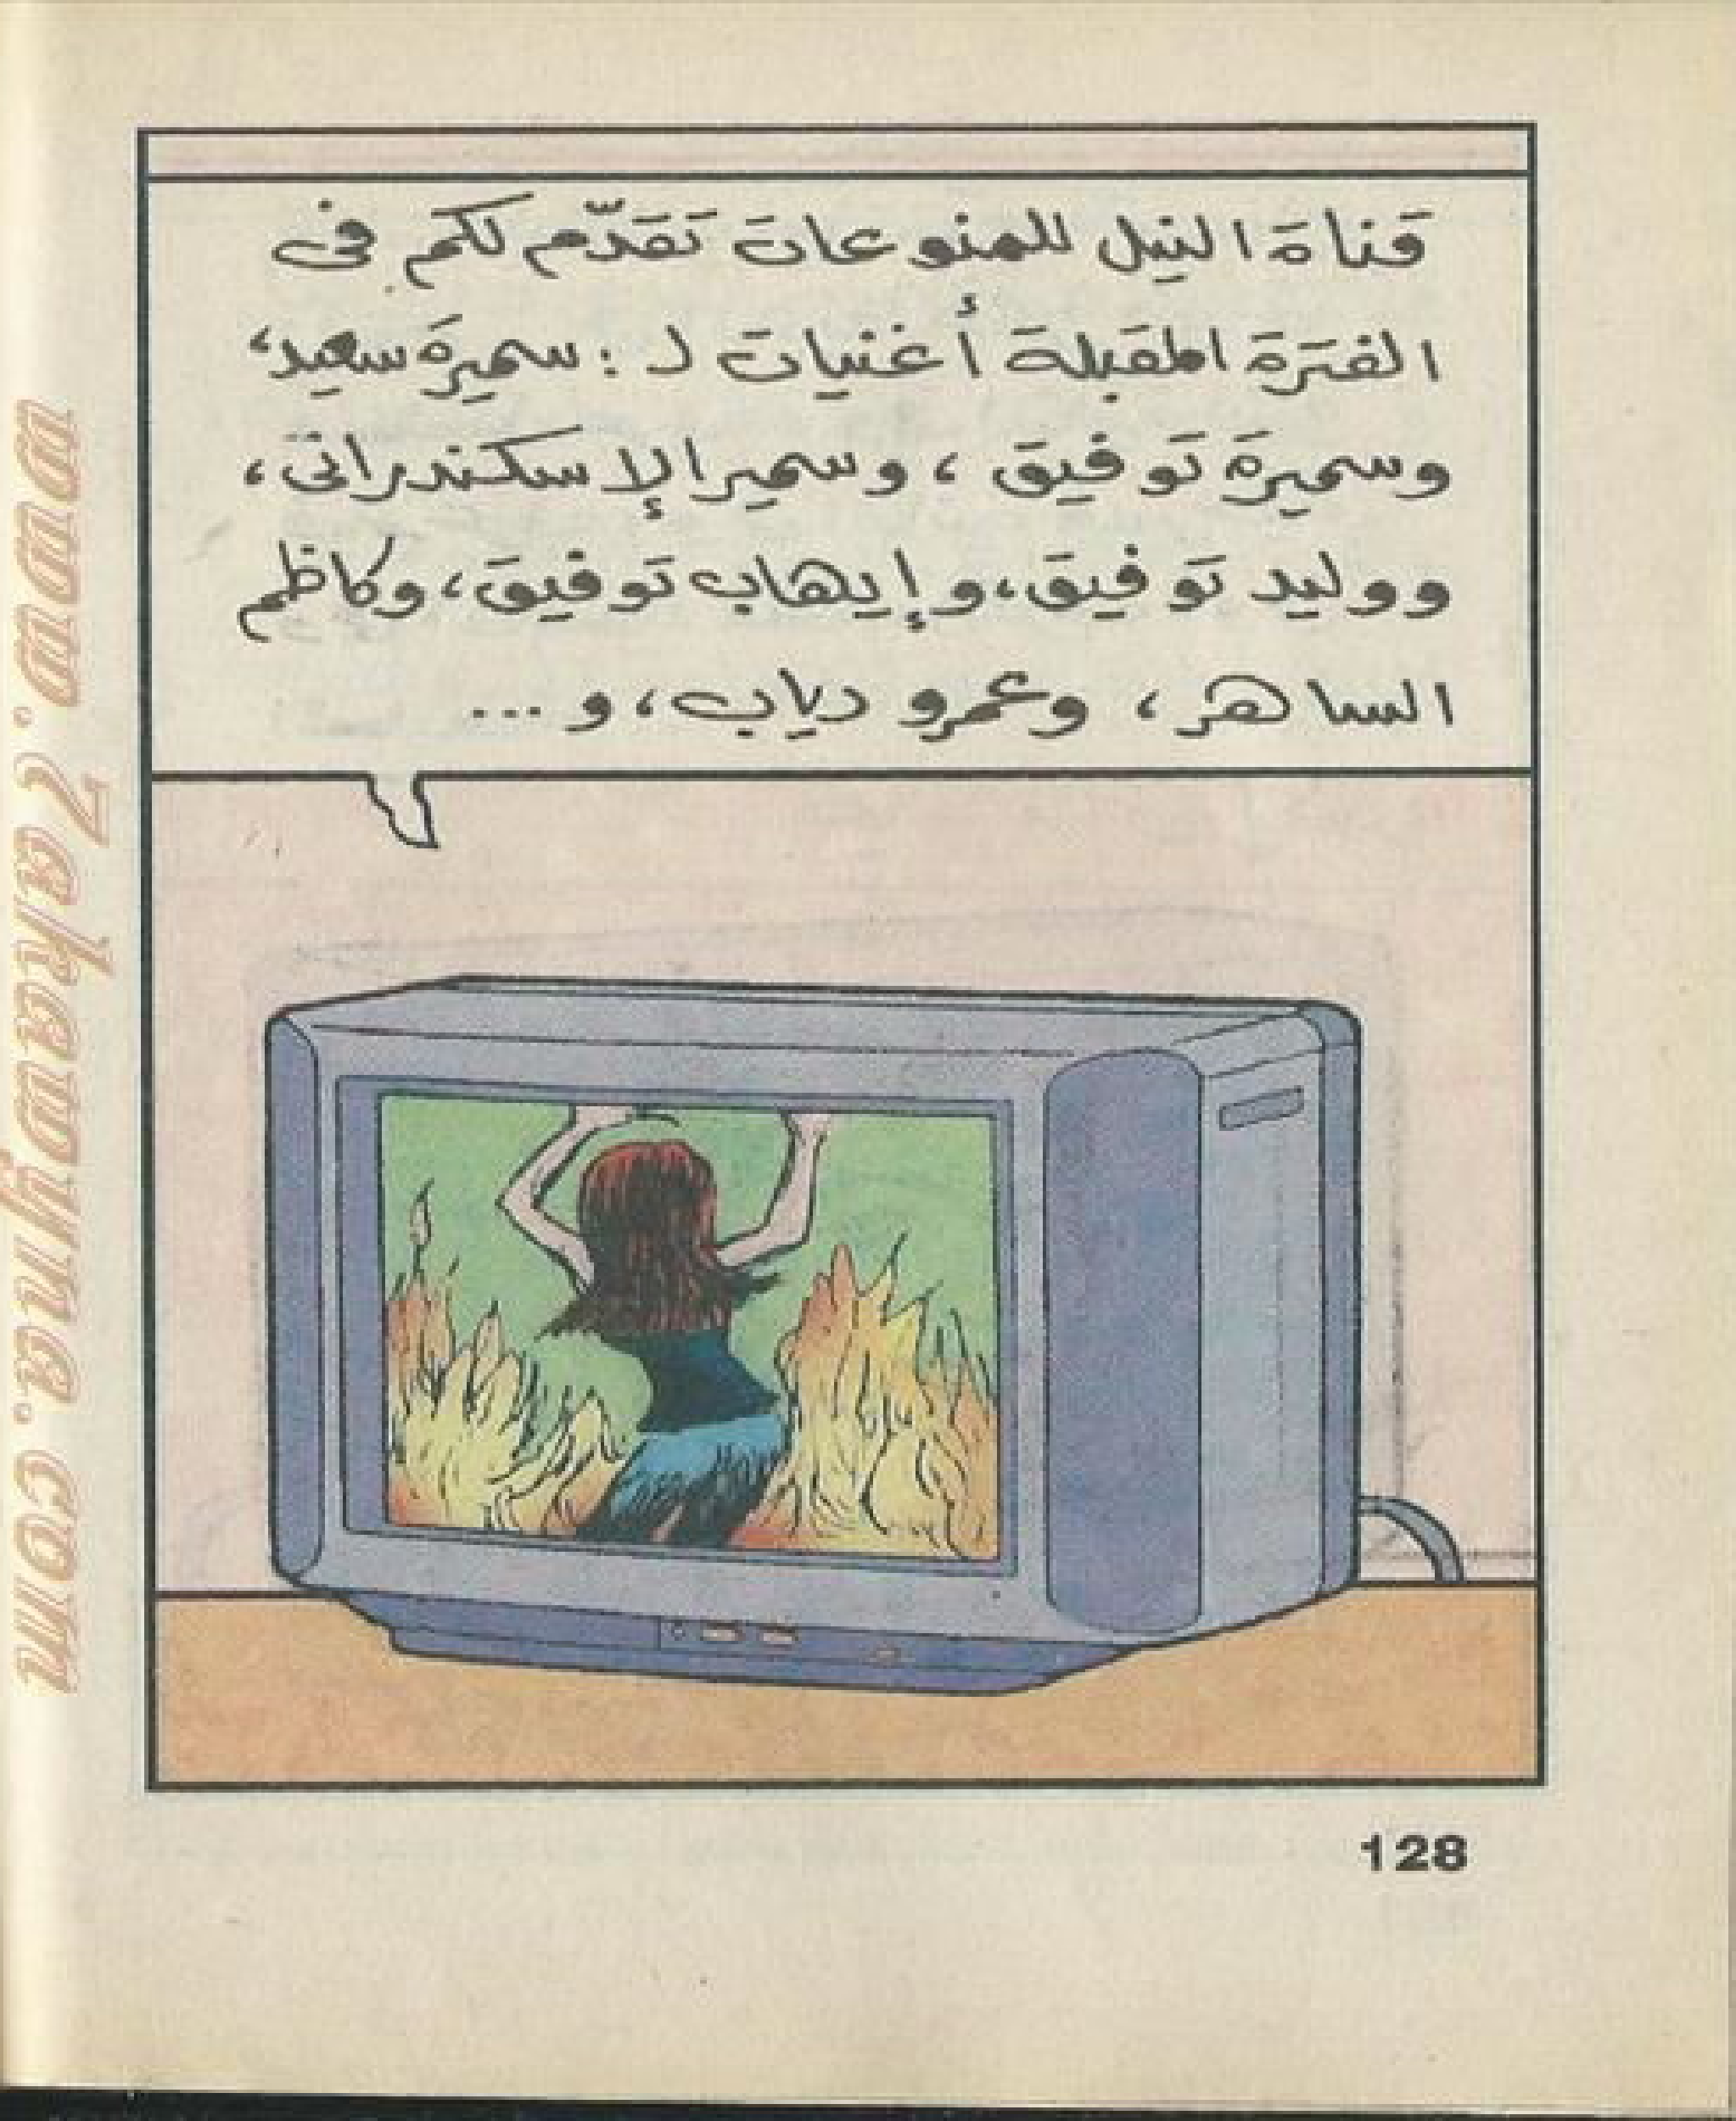 قناة النيل للمنوعات تقدّم لكم فى
الفترة المقبلة أغنيات لـ : سميرة سعيد،
وسميرة توفيق ، وسمير الإسكندرانى ،
ووليد توفيق، وإيهاب توفيق، وكاظم
الساهر ، وعمرو دياب ، و ...
128
www.Zakrauyhna.com